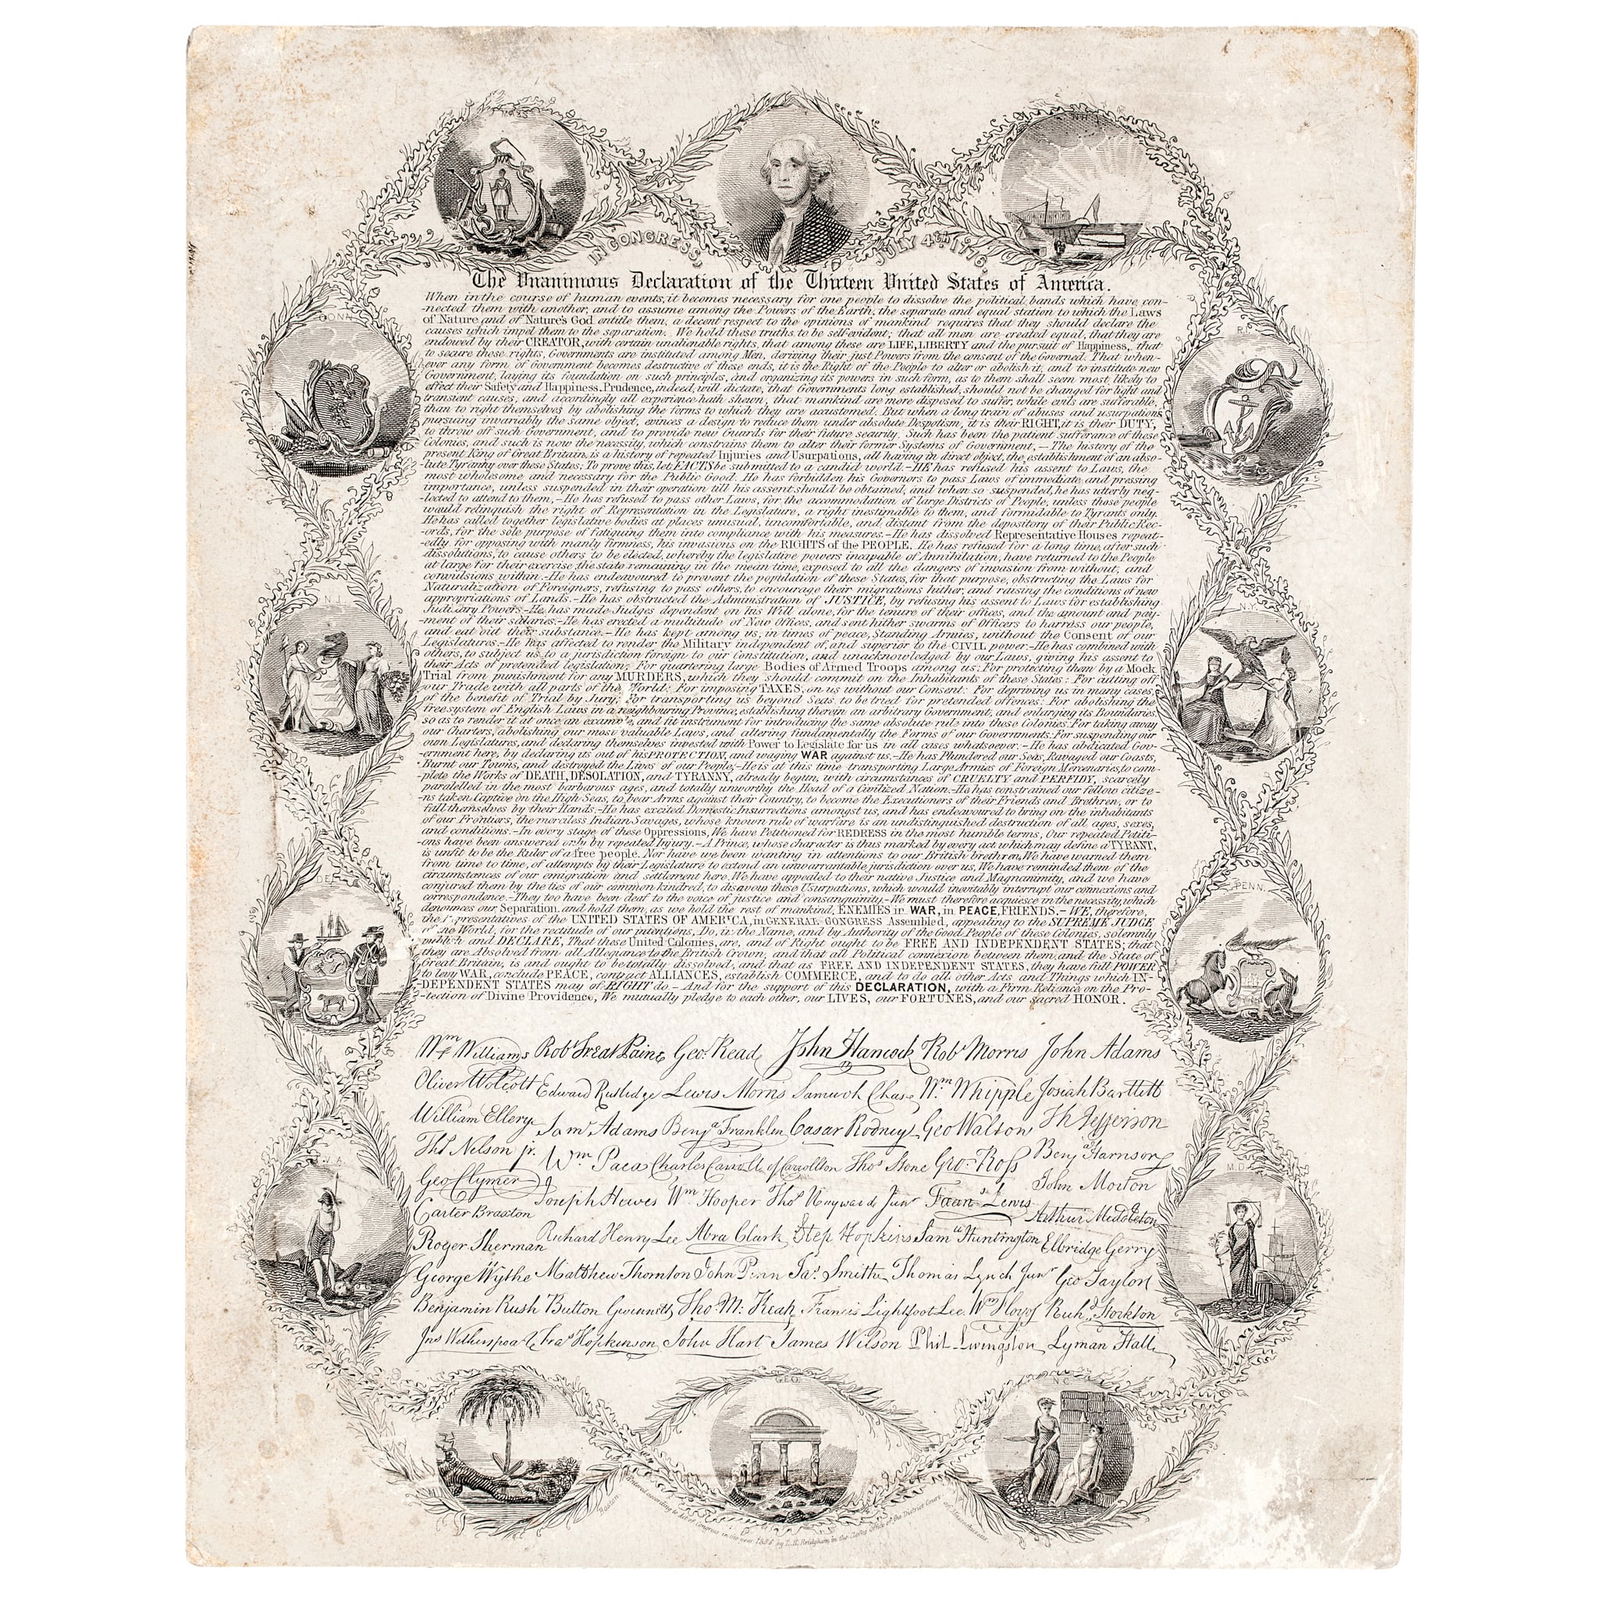 MASS
IN CONGRESS, JULY 4th 1776
The Unanimous Declaration of the Thirteen United States of America.
When in the course of human events, it becomes necessary for one people to dissolve the political bands which have con-
-nected them with another, and to assume among the Powers of the Earth, the separate and equal station to which the Laws
of Nature and of Nature's God entitle them, a decent respect to the opinions of mankind requires that they should declare the
causes which impel them to the separation. We hold these truths to be self-evident; that all men are created equal, that they are
endowed by their CREATOR, with certain unalienable rights, that among these are LIFE, LIBERTY and the pursuit of Happiness, that
to secure these rights, Governments are instituted among Men, deriving their just Powers from the consent of the Governed. That when-
-ever any form of Government becomes destructive of these ends, it is the Right of the People to alter or abolish it, and to institute new
Government, laying its foundation on such principles, and organizing its powers in such form, as to them shall seem most likely to
effect their Safety and Happiness. Prudence, indeed, will dictate, that Governments long established, should not be changed for light and
transient causes, and accordingly all experience hath shewn, that mankind are more disposed to suffer, while evils are sufferable,
than to right themselves by abolishing the forms to which they are acustomed. But when a long train of abuses and usurpations
pursuing invariably the same object, evinces a design to reduce them under absolute Despotism, it is their RIGHT, it is their DUTY,
to throw off such Government, and to provide new Guards for their future security. Such has been the patient sufferance of these
Colonies, and such is now the necessity which constrains them to alter their former Systems of Government. - The history of the
present King of Great Britain, is a history of repeated Injuries and Usurpations, all having in direct object, the establishment of an abso-
-lute Tyranny over these States; To prove this, let FACTS be submitted to a candid world. - HE has refused his assent to Laws, the
most wholesome and necessary for the Public Good. He has forbidden his Governors to pass Laws of immediate and pressing
importance, unless suspended in their operation till his assent should be obtained, and when so suspended, he has utterly neg-
-lected to attend to them, - He has refused to pass other Laws, for the accommodation of large Districts of People, unless those people
would relinquish the right of Representation in the Legislature, a right inestimable to them, and formidable to Tyrants only.
He has called together legislative bodies at places unusual, uncomfortable, and distant from the depository of their Public Rec-
-ords, for the sole purpose of fatiguing them into compliance with his measures. - He has dissolved Representative Houses repeat-
-edly for opposing with manly firmness, his invasions on the RIGHTS of the PEOPLE. He has refused for a long time, after such
dissolutions, to cause others to be elected, whereby the legislative powers incapable of Annihilation, have returned to the People
at large for their exercise, the state remaining in the mean time, exposed to all the dangers of invasion from without, and
convulsions within. - He has endeavoured to prevent the population of these States, for that purpose, obstructing the Laws for
Naturalization of Foreigners, refusing to pass others, to encourage their migrations hither, and raising the conditions of new
appropriations of Lands. - He has obstructed the Administration of JUSTICE, by refusing his assent to Laws for establishing
Judiciary Powers - He has made Judges dependent on his Will alone, for the tenure of their offices, and the amount and pay-
-ment of their salaries. - He has erected a multitude of New Offices, and sent hither swarms of Officers to harrass our people,
and eat out their substance. - He has kept among us, in times of peace, Standing Armies, without the Consent of our
Legislatures. - He has affected to render the Military independent of, and superior to the CIVIL power. - He has combined with
others, to subject us, to a jurisdiction foreign to our Constitution, and unacknowledged by our Laws, giving his assent to
their Acts of pretended legislation; For quartering large Bodies of Armed Troops among us: For protecting them by a Mock
Trial from punishment for any MURDERS, which they should commit on the Inhabitants of these States: For cutting off
our Trade with all parts of the World: For imposing TAXES, on us without our Consent: For depriving us in many cases,
of the benefit of Trial by Jury; For transporting us beyond Seas to be tried for pretended offences: For abolishing the
free system of English Laws in a neighbouring Province, establishing therein an arbitrary Government, and enlarging its Boundaries
so as to render it at once an example, and fit instrument for introducing the same absolute rule into these Colonies: For taking away
our Charters, abolishing our most valuable Laws, and altering fundamentally the Forms of our Governments: For suspending our
own Legislatures, and declaring themselves invested with Power to Legislate for us in all cases whatsoever. - He has abdicated Gov-
-ernment here, by declaring us out of his PROTECTION, and waging WAR against us. - He has Plundered our Seas, Ravaged our Coasts,
Burnt our Towns, and destroyed the Lives of our People, - He is at this time transporting Large Armies of Foreign Mercenaries, to com-
plete the Works of DEATH, DESOLATION, and TYRANNY, already begun, with circumstances of CRUELTY and PERFIDY, scarcely
paralelled in the most barbarous ages, and totally unworthy the Head of a Civilized Nation. - He has constrained our fellow citize-
-ns taken Captive on the High Seas, to bear Arms against their Country, to become the Executioners of their Friends and Brethren, or to
fall themselves by their Hands. - He has excited Domestic Insurrections amongst us, and has endeavoured to bring on the inhabitants
of our Frontiers, the merciless Indian Savages, whose known rule of warfare is an undistinguished destruction of all ages, sexes,
and conditions. - In every stage of these Oppressions, We have Petitioned for REDRESS in the most humble terms, Our repeated Petiti-
-ons have been answered only by repeated Injury. - A Prince, whose character is thus marked by every act which may define a TYRANT,
is unfit to be the Ruler of a free people. Nor have we been wanting in attentions to our British brethren, We have warned them
from time to time, of attempts by their Legislature to extend an unwarrantable jurisdiction over us, We have reminded them of the
circumstances of our emigration and settlement here. We have appealed to their native Justice and Magnanimity, and we have
conjured them by the ties of our common kindred, to disavow these Usurpations, which would inevitably interrupt our connexions and
correspondence. - They too have been deaf to the voice of justice and consanguinity. - We must therefore acquiesce in the necessity, which
denounces our Separation, and hold them, as we hold the rest of mankind, ENEMIES in WAR, in PEACE, FRIENDS. - WE, therefore,
the representatives of the UNITED STATES OF AMERICA, in GENERAL CONGRESS Assembled, appealing to the SUPREME JUDGE
of the World, for the rectitude of our intentions, Do, in the Name, and by Authority of the Good People of these Colonies, solemnly
publish and DECLARE, That these United Colonies, are, and of Right ought to be FREE AND INDEPENDENT STATES; that
they are Absolved from all Allegiance to the British Crown, and that all Political connexion between them, and the State of
Great Britain, is and ought to be totally dissolved, and that as FREE AND INDEPENDENT STATES, they have full POWER
to levy WAR, conclude PEACE, conquer ALLIANCES, establish COMMERCE, and to do all other Acts and Things which IN-
-DEPENDENT STATES may of RIGHT do. - And for the support of this DECLARATION, with a Firm Reliance on the Pro-
-tection of Divine Providence, We mutually pledge to each other, our LIVES, our FORTUNES, and our sacred HONOR.
CONN.
R.I.
N.J.
N.Y.
DEL.
PENN.
VA.
M.D.
Wm Williams Robt Treat Paine Geo. Read John Hancock Robt Morris John Adams
Oliver Wolcott Edward Rutledge Lewis Morris Samuel Chase Wm Whipple Josiah Bartlett
William Ellery Saml Adams Benja Franklin Cæsar Rodney Geo Walton Th Jefferson
Thos Nelson jr. Wm Paca Charles Carroll of Carrollton Thos Stone Geo. Ross Benj Harrison
Geo Clymer Joseph Hewes Wm Hooper Thos Heyward Junr Frans Lewis John Morton
Carter Braxton Arthur Middleton
Roger Sherman Richard Henry Lee Abra Clark Step Hopkins Saml Huntington Elbridge Gerry
George Wythe Matthew Thornton John Penn Jas Smith Thomas Lynch Junr Geo Taylor
Benjamin Rush Button Gwinnett Tho. M. Kean Francis Lightfoot Lee Wm Floyd Richd Stockton
Jno Witherspoon Fras Hopkinson John Hart James Wilson Phil. Livingston Lyman Hall
GEO.
N.C.
Entered according to Act of Congress in the year by L. H. Bridgham in the Clerks Office of the District Court of Massachusetts.